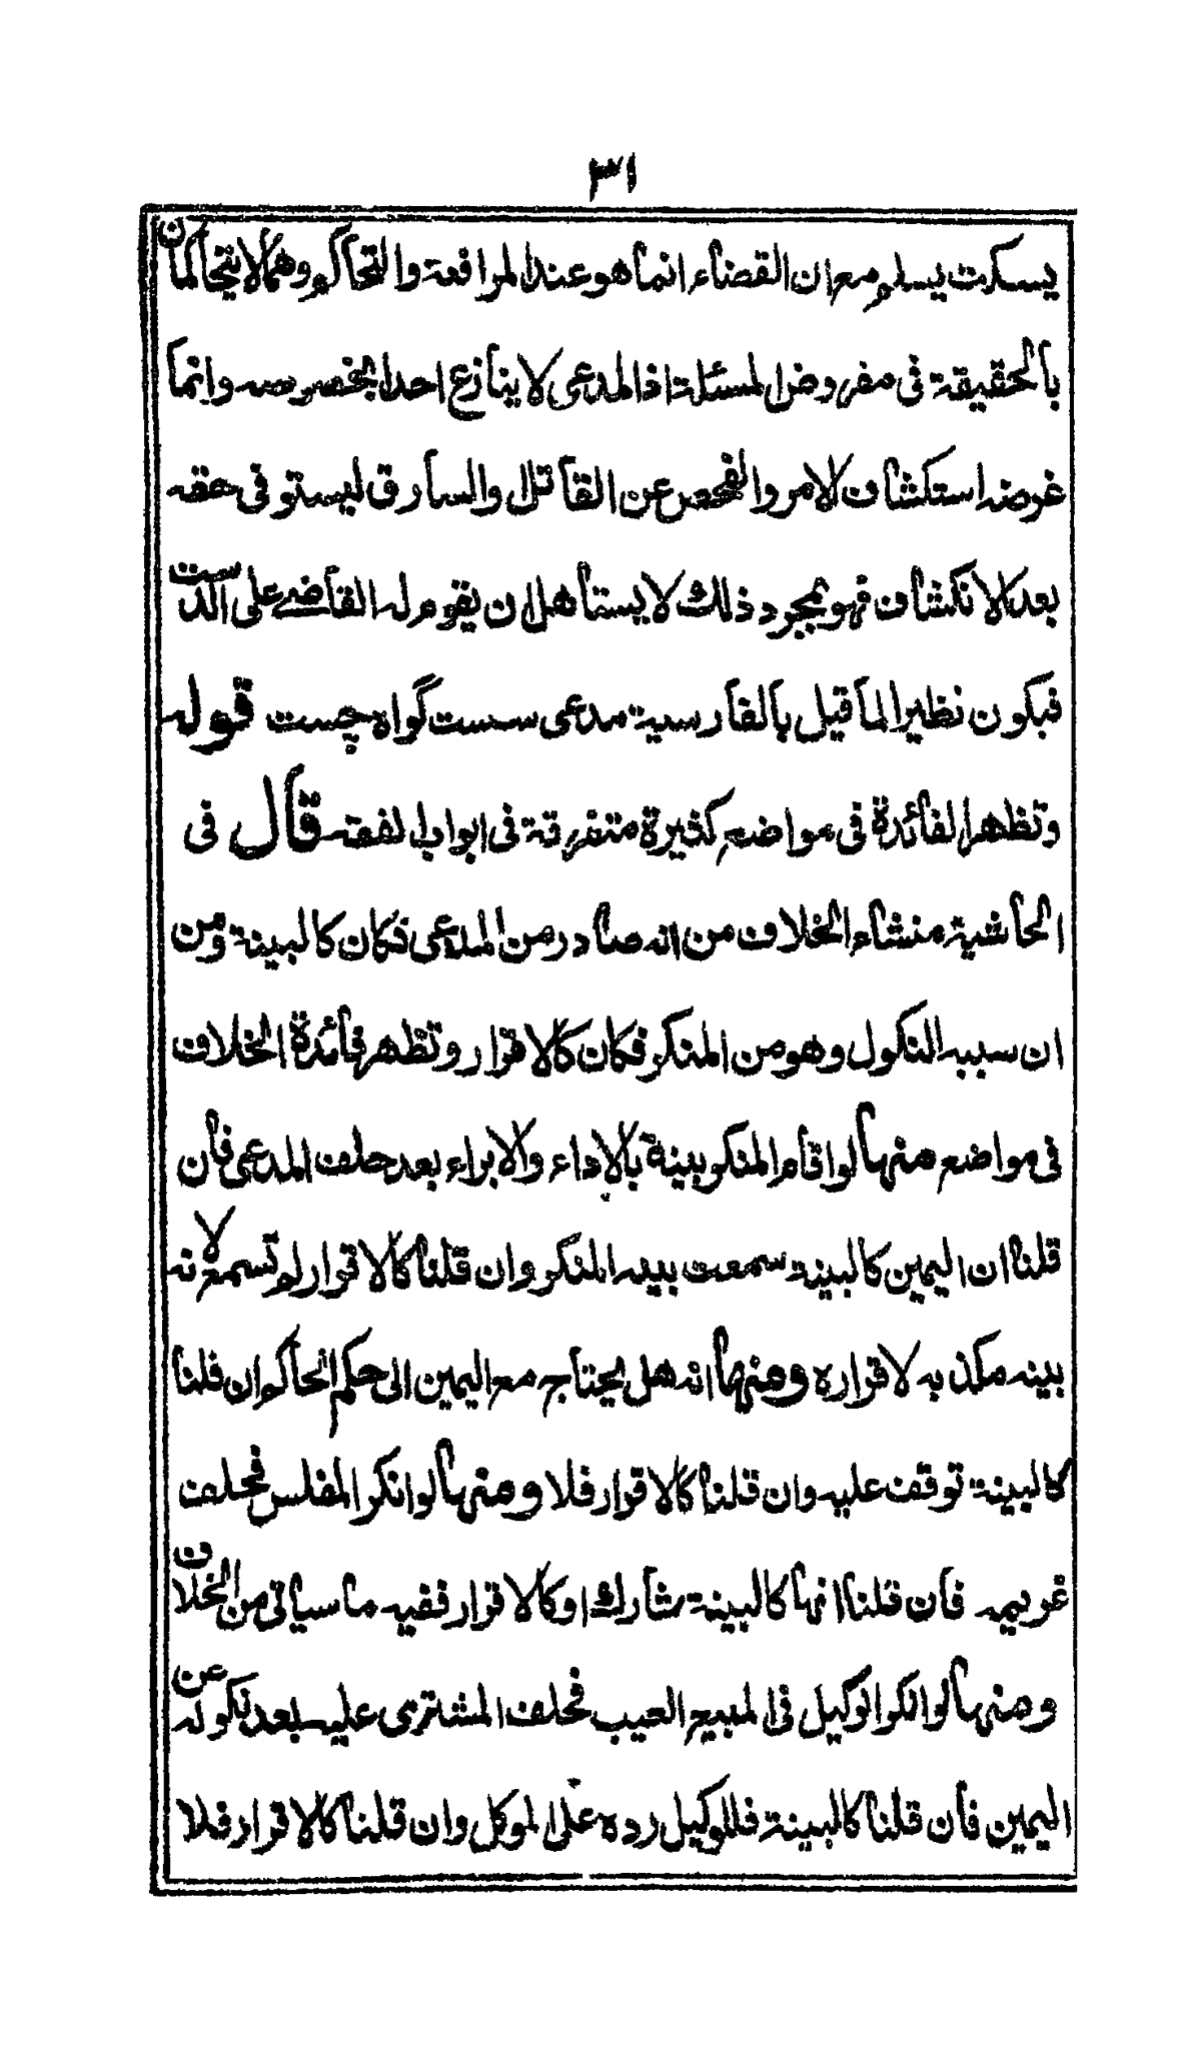 ٣١
يسكت يسلم مع ان القضاء انما هو عند المرافعة والتحاكم وهما لا يتحاكمان
بالحقيقة فى مفروض المسئلة اذ المدعى لا ينازع احدا بخصوصه وانما
غرضه استكشاف الامر والفحص عن القاتل والسارق ليستوفى حقه
بعد الانكشاف فهو بمجرد ذلك لا يستأهل ان يقوم له القاضى على الدست
فيكون نظير الما قيل بالفارسية مدعى سست گواه چست قوله
وتظهر الفائدة فى مواضع كثيرة متفرقة فى ابواب الفقه قال فى
الحاشية منشاء الخلاف من انه صادر من المدعى فكان كالبينة ومن
ان سببه النكول وهو من المنكر فكان كالاقرار وتظهر فائدة الخلاف
فى مواضع منها لو اقام المنكر بينة بالاداء والابراء بعد حلف المدعى فان
قلنا ان اليمين كالبينة سمعت بينه المنكر وان قلنا كالاقرار لم تسمع لانه
بينه مكذبه لاقراره ومنها انه هل يحتاج مع اليمين الى حكم الحاكم ان قلنا
كالبينة توقف عليه وان قلنا كالاقرار فلا ومنها لو انكر المفلس فحلف
غريمه فان قلنا انها كالبينة شارك او كالاقرار ففيه ما سياتى من الخلاف
ومنها لو انكر الوكيل فى المبيع العيب فحلف المشترى عليه بعد نكوله عن
اليمين فان قلنا كالبينة فللوكيل رده على الموكل وان قلنا كالاقرار فلا